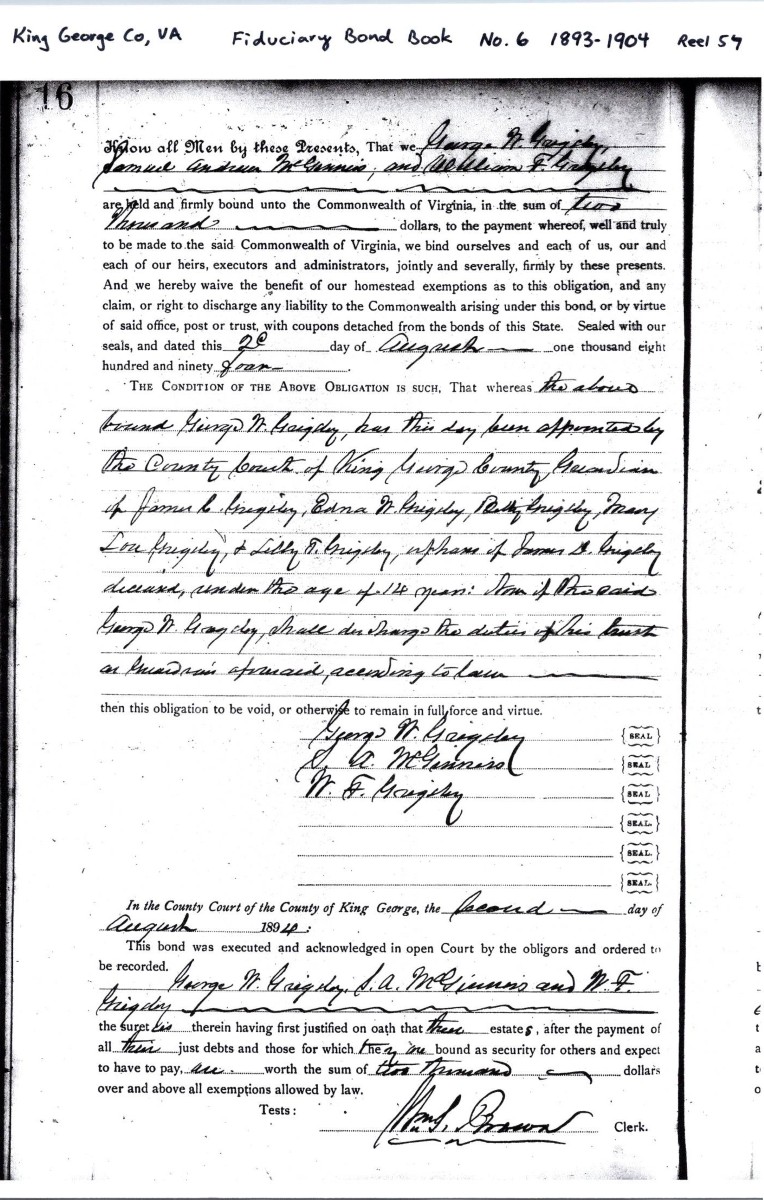 King George Co, VA Fiduciary Bond Book No. 6 1893-1904 Reel 57
16
Know all Men by these Presents, That we George W. Grigsby,
Samuel Andrew McGinniss, and William F. Grigsby
are held and firmly bound unto the Commonwealth of Virginia, in the sum of two
thousand dollars, to the payment whereof, well and truly
to be made to the said Commonwealth of Virginia, we bind ourselves and each of us, our and
each of our heirs, executors and administrators, jointly and severally, firmly by these presents.
And we hereby waive the benefit of our homestead exemptions as to this obligation, and any
claim, or right to discharge any liability to the Commonwealth arising under this bond, or by virtue
of said office, post or trust, with coupons detached from the bonds of this State. Sealed with our
seals, and dated this 2d day of August one thousand eight
hundred and ninety four.
THE CONDITION OF THE ABOVE OBLIGATION IS SUCH, That whereas the above
bound George W. Grigsby, has this day been appointed by
the County Court of King George County Guardian
of James C. Grigsby, Edna W. Grigsby, Grigsby, Mary
Lou Grigsby, & Lilly T. Grigsby, orphans of James D. Grigsby
deceased, under the age of 14 years: Now if the said
George W. Grigsby, shall discharge the duties of his trust
as Guardian aforesaid, according to law
then this obligation to be void, or otherwise to remain in full force and virtue.
George W. Grigsby {SEAL}
S. A. McGinniss {SEAL}
W. F. Grigsby {SEAL}
{SEAL.}
{SEAL.}
{SEAL.}
In the County Court of the County of King George, the Second day of
August 1894:
This bond was executed and acknowledged in open Court by the obligors and ordered to
be recorded.
George W. Grigsby, S. A. McGinniss and W. F.
Grigsby
the sureties therein having first justified on oath that their estates, after the payment of
all their just debts and those for which they are bound as security for others and expect
to have to pay, are worth the sum of two thousand dollars
over and above all exemptions allowed by law.
Tests:
Wm. S. Brown Clerk.